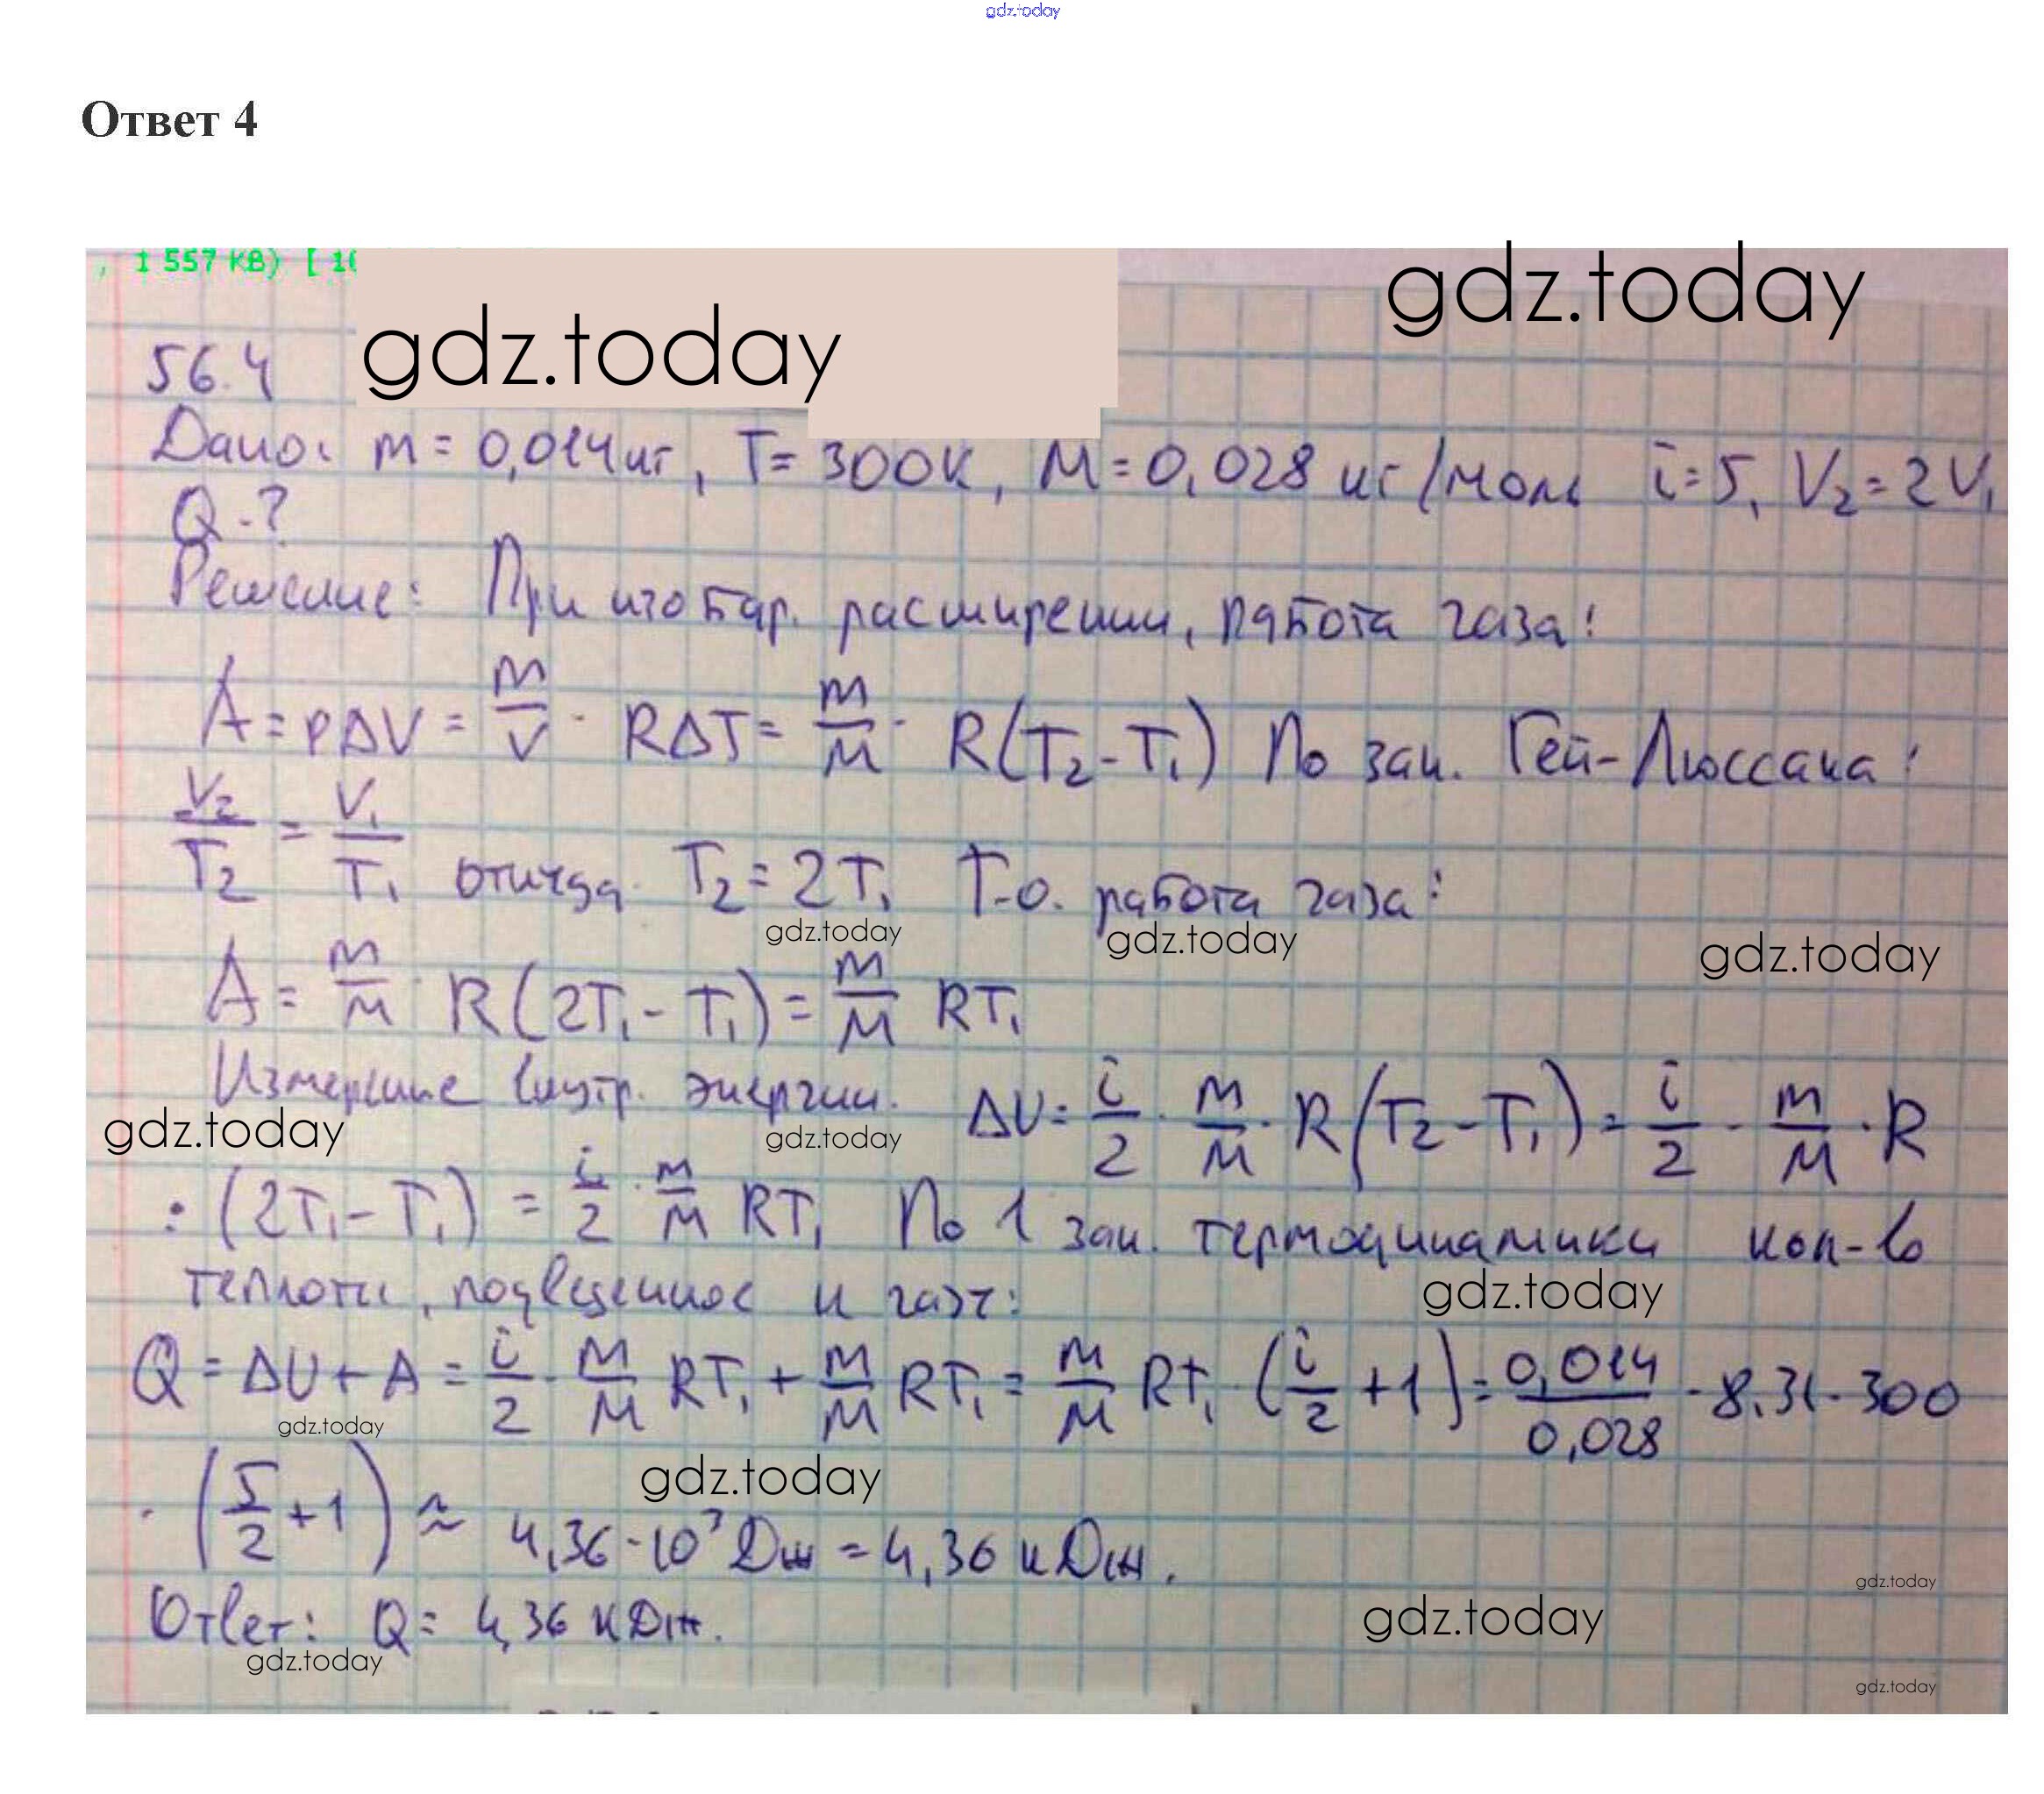 gdz.today
Ответ 4
, 1 557 KB) [ 10
gdz.today
gdz.today
56.4
Дано: m = 0,014 кг, T = 300 К, M = 0,028 кг/моль i = 5, V₂ = 2V₁
Q - ?
Решение: При изобар. расширении, работа газа:
A = pΔV = m/V · RΔT = m/M · R(T₂ - T₁) По зак. Гей-Люссака:
V₂/T₂ = V₁/T₁ откуда T₂ = 2T₁ Т.о. работа газа:
gdz.today
gdz.today
gdz.today
A = m/M · R(2T₁ - T₁) = m/M RT₁
Измерение внутр. энергии. ΔU = i/2 · m/M · R(T₂ - T₁) = i/2 · m/M · R
gdz.today
gdz.today
· (2T₁ - T₁) = i/2 · m/M RT₁ По 1 зак. термодинамики кол-во
теплоты, подведенное к газу:
gdz.today
Q = ΔU + A = i/2 · m/M RT₁ + m/M RT₁ = m/M RT₁ · (i/2 + 1) = 0,014/0,028 · 8,31 · 300
gdz.today
gdz.today
· (5/2 + 1) ≈ 4,36 · 10³ Дж = 4,36 кДж.
gdz.today
Ответ: Q = 4,36 кДж.
gdz.today
gdz.today
gdz.today